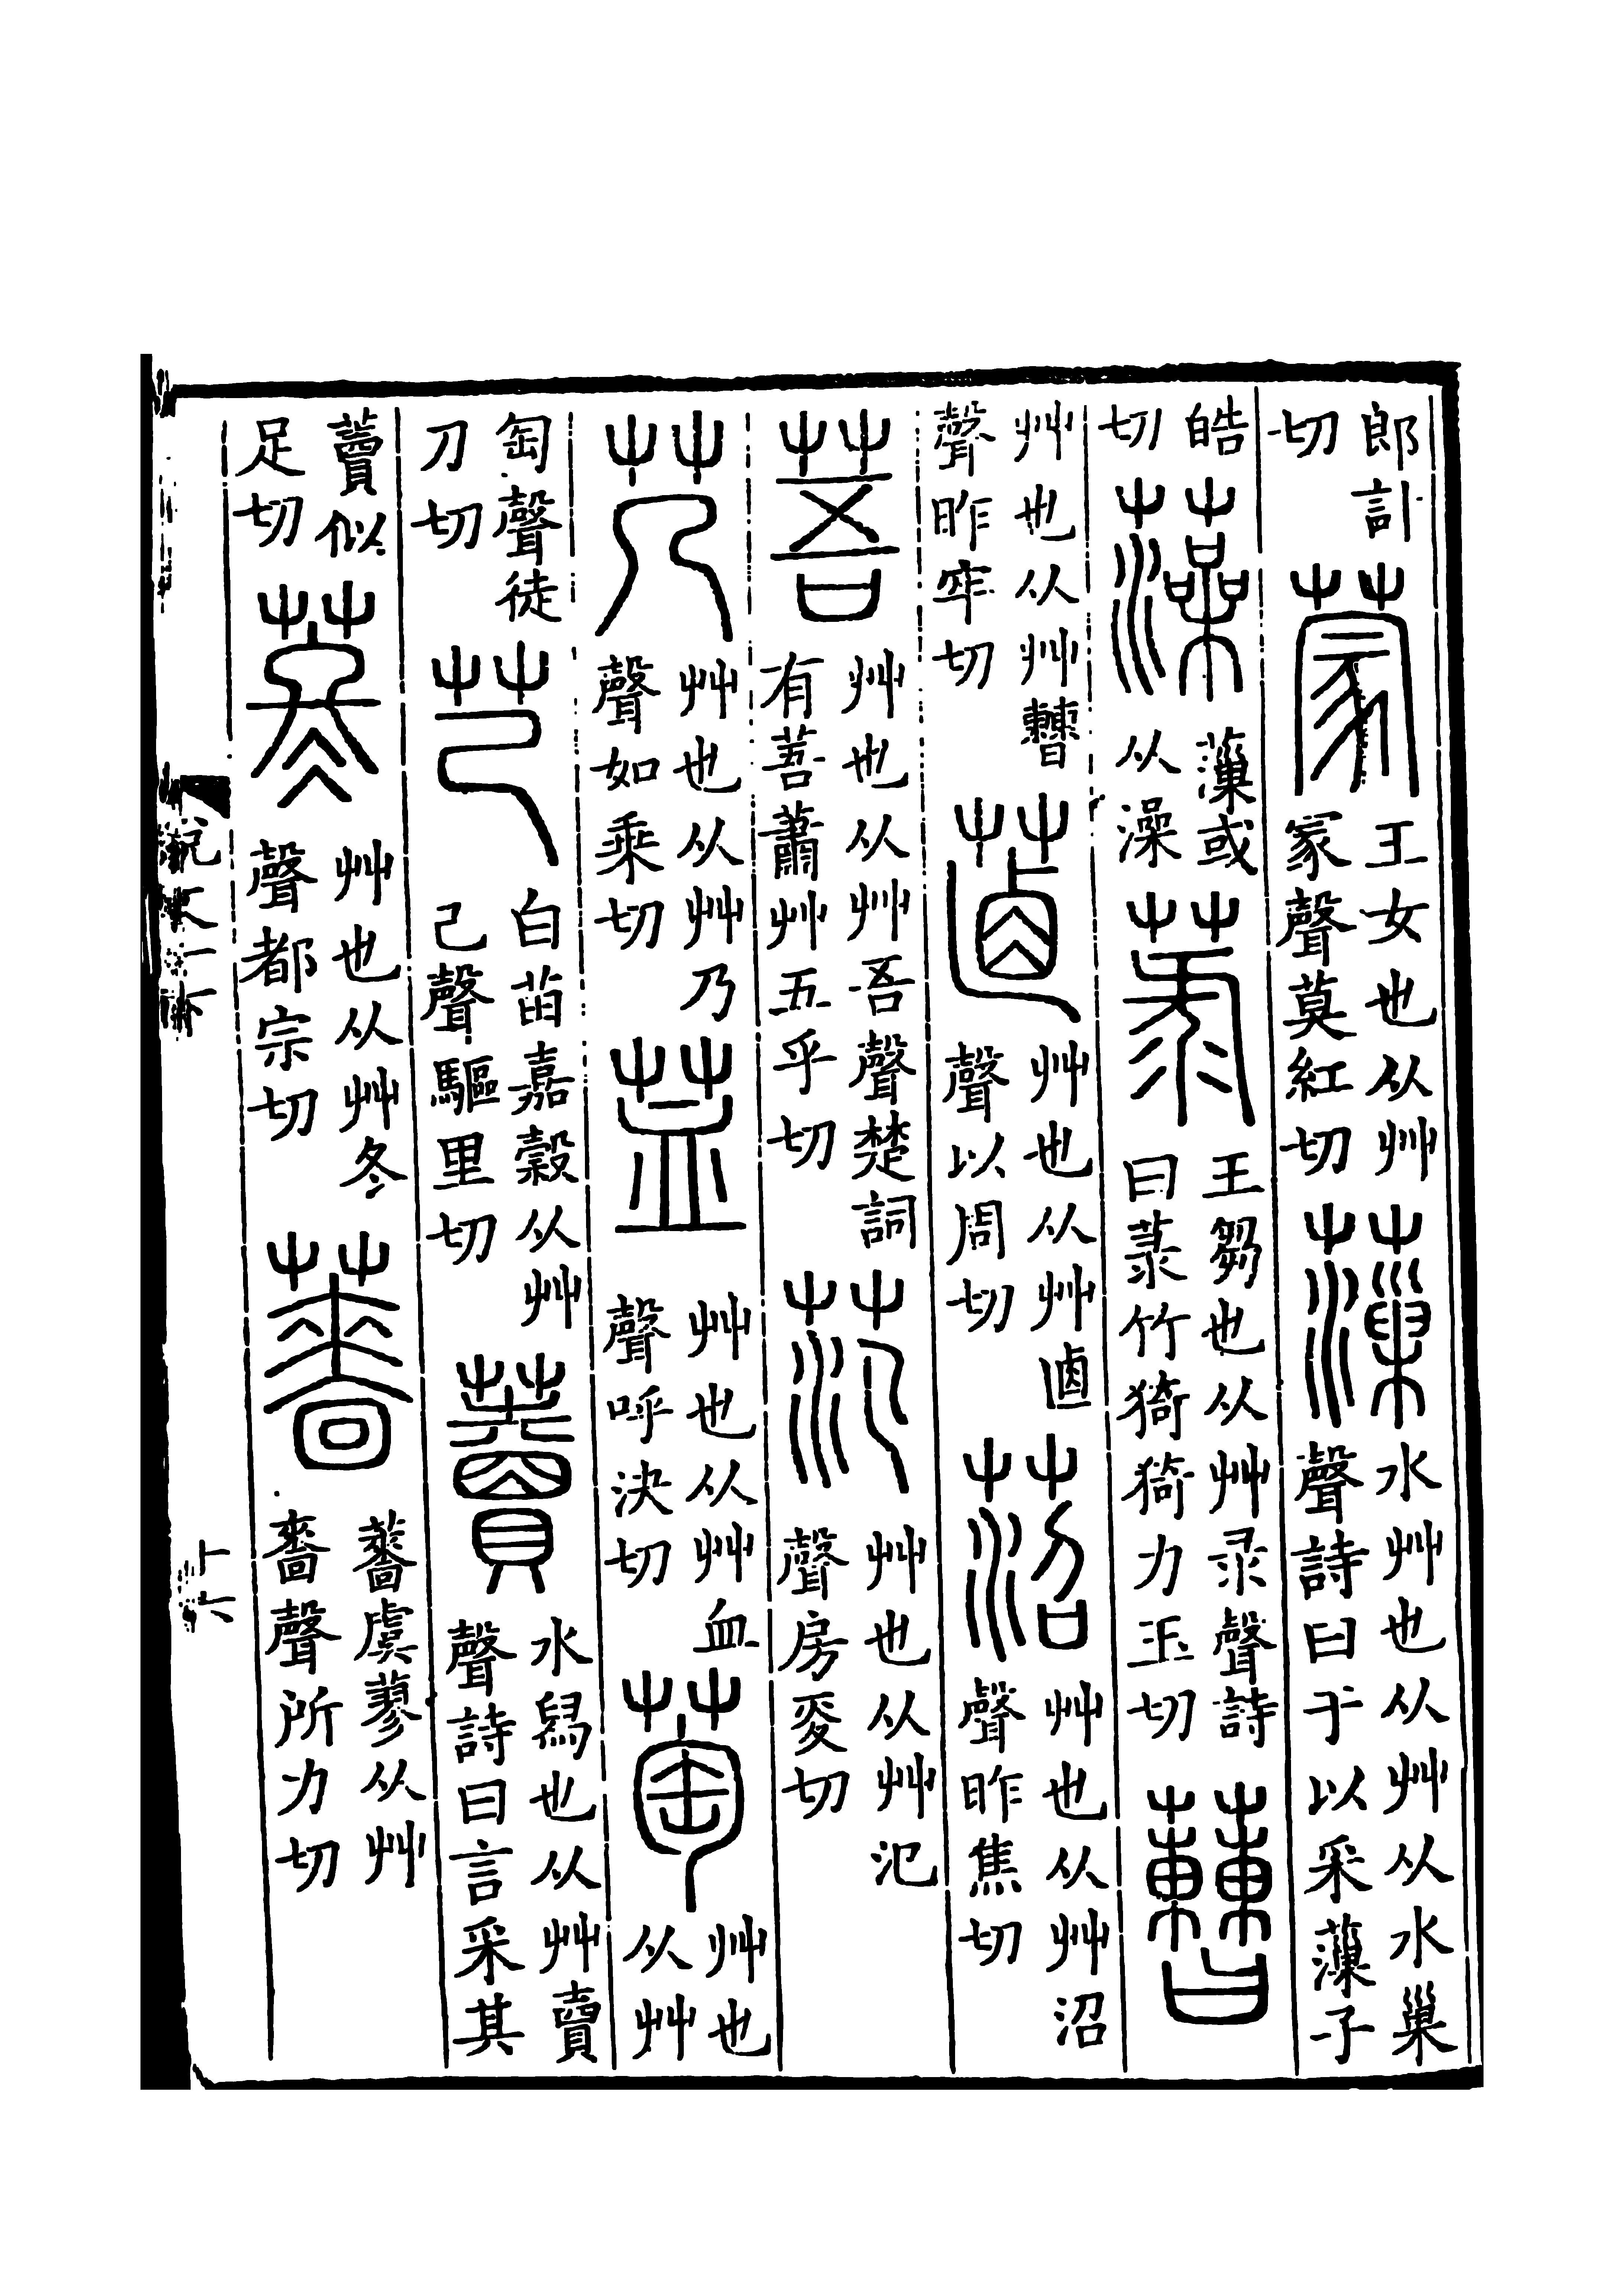 郎計切蒙王女也从艸冡聲莫紅切薻水艸也从艸从水巢聲詩曰于以采薻子
皓切藻薻或从澡菉王芻也从艸彔聲詩曰菉竹猗猗力玉切𧂇
艸也从艸𣍘聲昨牢切𦸔艸也从艸𠧴聲以周切菬艸也从艸沼聲昨焦切
䓊艸也从艸吾聲楚詞有䓊蕭艸五乎切范艸也从艸氾聲房夌切
艿艸也从艸乃聲如乘切𦭥艸也从艸血聲呼決切萄艸也从艸
匋聲徒刀切芑白苗嘉穀从艸己聲驅里切藚水舄也从艸賣聲詩曰言采其
藚似足切苳艸也从艸冬聲都宗切薔薔虞蓼从艸嗇聲所力切
說文一下
十六